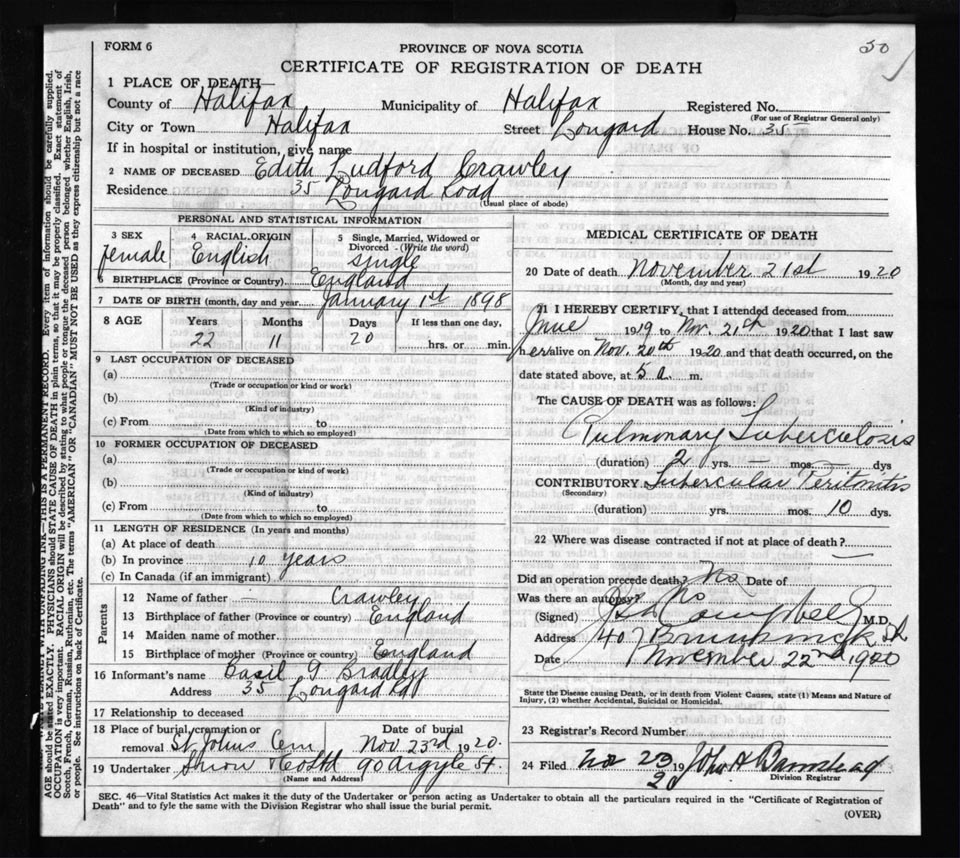 FORM 6
PROVINCE OF NOVA SCOTIA
50
CERTIFICATE OF REGISTRATION OF DEATH
1 PLACE OF DEATH
County of Halifax Municipality of Halifax Registered No.
(For use of Registrar General only)
City or Town Halifax Street Longard House No. 35
If in hospital or institution, give name
2 NAME OF DECEASED Edith Ludford Crawley
Residence 35 Longard Road
(Usual place of abode)
PERSONAL AND STATISTICAL INFORMATION
3 SEX 4 RACIAL ORIGIN 5 Single, Married, Widowed or Divorced - (Write the word)
female English single
6 BIRTHPLACE (Province or Country) England
7 DATE OF BIRTH (month, day and year) January 1st 1898
8 AGE Years Months Days If less than one day,
22 11 20 hrs. or min.
9 LAST OCCUPATION OF DECEASED
(a)
(Trade or occupation or kind or work)
(b)
(Kind of industry)
(c) From to
(Date from which to which so employed)
10 FORMER OCCUPATION OF DECEASED
(a)
(Trade or occupation or kind or work)
(b)
(Kind of industry)
(c) From to
(Date from which to which so employed)
11 LENGTH OF RESIDENCE (In years and months)
(a) At place of death
(b) In province 10 years
(c) In Canada (if an immigrant)
Parents
12 Name of father - Crawley
13 Birthplace of father (Province or country) England
14 Maiden name of mother
15 Birthplace of mother (Province or country) England
16 Informant's name Basil G Bradley
Address 35 Longard Rd
17 Relationship to deceased
18 Place of burial, cremation or removal St Johns Cem Date of burial Nov 23rd 1920.
19 Undertaker Snow & Co Ltd 90 Argyle St.
(Name and Address)
MEDICAL CERTIFICATE OF DEATH
20 Date of death November 21st 1920
(Month, day and year)
21 I HEREBY CERTIFY, that I attended deceased from
June 1919 to Nov. 21th 1920 that I last saw
her alive on Nov. 20th 1920 and that death occurred, on the
date stated above, at 5 a. m.
The CAUSE OF DEATH was as follows:
Pulmonary Tuberculosis
(duration) 2 yrs. — mos. dys
CONTRIBUTORY Tubercular Peritonitis
(Secondary)
(duration) yrs. mos. 10 dys.
22 Where was disease contracted if not at place of death?
Did an operation precede death? No Date of
Was there an autopsy? No
(Signed) Campbell M.D.
Address 407 Brunswick St
Date November 22nd 1920
State the Disease causing Death, or in death from Violent Causes, state (1) Means and Nature of
Injury, (2) whether Accidental, Suicidal or Homicidal.
23 Registrar's Record Number
24 Filed Nov 23 1920 John A Barnstead
Division Registrar
SEC. 46—Vital Statistics Act makes it the duty of the Undertaker or person acting as Undertaker to obtain all the particulars required in the "Certificate of Registration of
Death" and to fyle the same with the Division Registrar who shall issue the burial permit.
(OVER)
WRITE PLAINLY WITH UNFADING INK—THIS IS A PERMANENT RECORD. Every item of information should be carefully supplied.
AGE should be stated EXACTLY. PHYSICIANS should STATE CAUSE OF DEATH in plain terms, so that it may be properly classified. Exact statement of
OCCUPATION is very important. RACIAL ORIGIN will be described by stating to what people or tongue the deceased person belonged whether English, Irish,
Scotch, French, German, Russian, Ruthenian, etc. The terms "AMERICAN" OR "CANADIAN" MUST NOT BE USED as they express citizenship but not a race
or people. See instructions on back of Certificate.